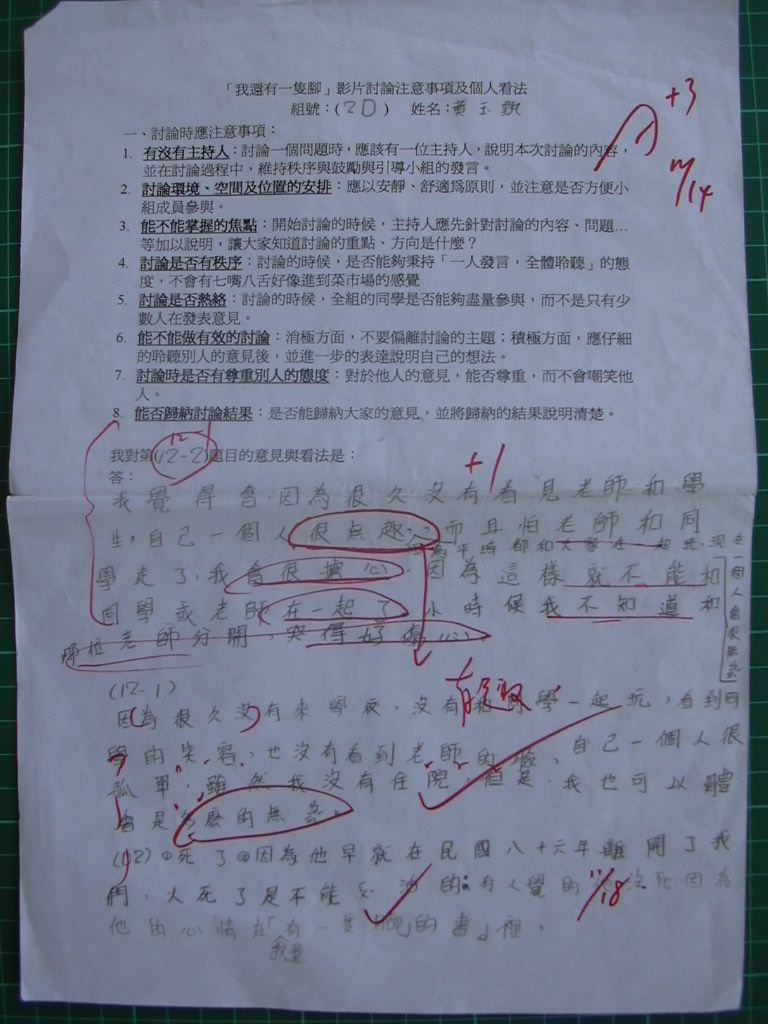 「我還有一隻腳」影片討論注意事項及個人看法
組號：(2D) 姓名：黃玉
A +3
一、討論時應注意事項：
1. 有沒有主持人：討論一個問題時，應該有一位主持人，說明本次討論的內容，
並在討論過程中，維持秩序與鼓勵與引導小組的發言。
2. 討論環境、空間及位置的安排：應以安靜、舒適為原則，並注意是否方便小
組成員參與。
3. 能不能掌握的焦點：開始討論的時候，主持人應先針對討論的內容、問題…
等加以說明，讓大家知道討論的重點、方向是什麼？
4. 討論是否有秩序：討論的時候，是否能夠秉持「一人發言，全體聆聽」的態
度，不會有七嘴八舌好像進到菜市場的感覺
5. 討論是否熱絡：討論的時候，全組的同學是否能夠盡量參與，而不是只有少
數人在發表意見。
6. 能不能做有效的討論：消極方面，不要偏離討論的主題；積極方面，應仔細
的聆聽別人的意見後，並進一步的表達說明自己的想法。
7. 討論時是否有尊重別人的態度：對於他人的意見，能否尊重，而不會嘲笑他
人。
8. 能否歸納討論結果：是否能歸納大家的意見，並將歸納的結果說明清楚。
12-1
我對第(12-2)題目的意見與看法是：
+1
答：
我覺得會，因為很久沒有看見老師和學
生，自己一個人很無趣，而且怕老師和同
因為平時都和大家在一起玩，現在
一個人會很無
學走了，我會很擔心，因為這樣就不能和
同學或老師在一起了小時候我不知道和
那位老師分開，哭得好傷心
(12-1)
因為很久沒有來學校，沒有和同學一起玩，看到同
學的笑容，也沒有看到老師的臉，自己一個人很
孤單，雖然我沒有住院，但是，我也可以體
會是多麼的無
(12) 死了 因為他早就在民國八十六年離開了我
們，人死了是不能復活的 有人覺的他沒死因為
11/18
他的心情在「有一隻腳的書」裡。
我還